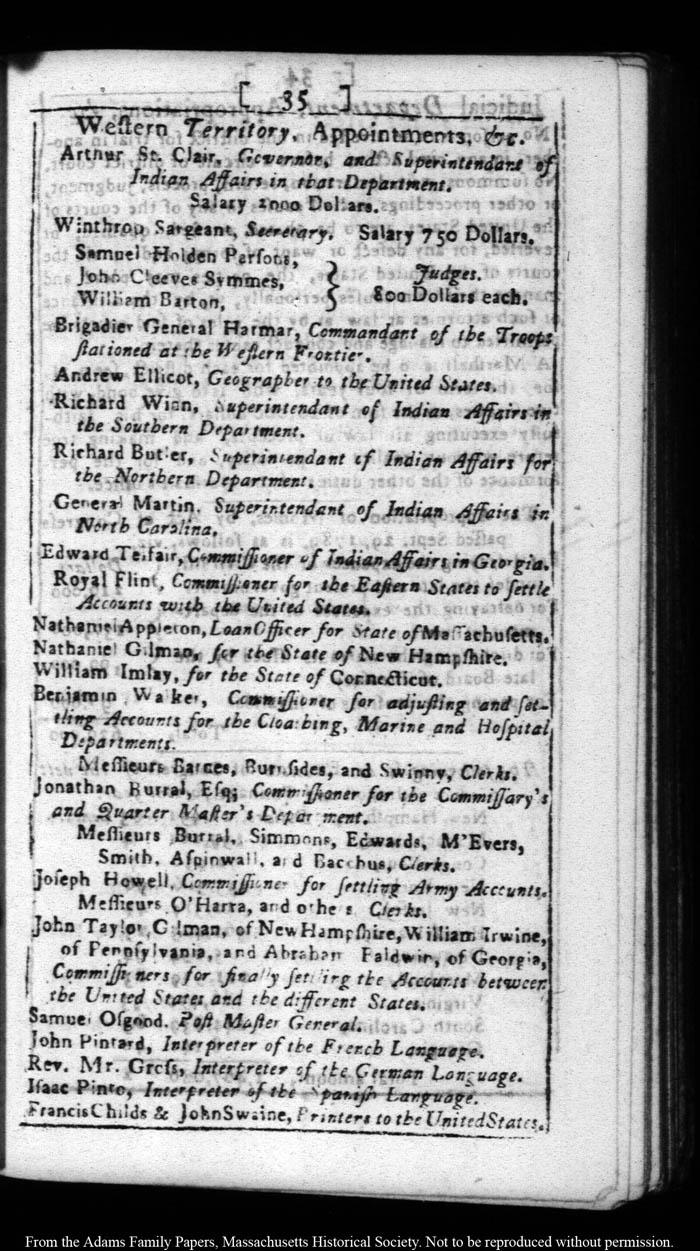 [ 35 ]
Weſtern Territory, Appointments, &c.
Arthur St. Clair, Governor, and Superintendant of
Indian Affairs in that Department.
Salary 2000 Dollars.
Winthrop Sargeant, Secretary. Salary 750 Dollars.
Samuel Holden Parſons,
John Cleeves Symmes, } Judges.
William Barton, 800 Dollars each.
Brigadier General Harmar, Commandant of the Troops
ſtationed at the Weſtern Frontier.
Andrew Ellicot, Geographer to the United States.
Richard Winn, Superintendant of Indian Affairs in
the Southern Department.
Richard Butler, Superintendant of Indian Affairs for
the Northern Department.
General Martin, Superintendant of Indian Affairs in
North Carolina.
Edward Telfair, Commiſſioner of Indian Affairs in Georgia.
Royal Flint, Commiſſioner for the Eaſtern States to ſettle
Accounts with the United States.
Nathaniel Appleton, Loan Officer for State of Maſſachuſetts.
Nathaniel Gilman, for the State of New Hampſhire.
William Imlay, for the State of Connecticut.
Benjamin Walker, Commiſſioner for adjuſting and ſet-
tling Accounts for the Cloathing, Marine and Hoſpital
Departments.
Meſſieurs Barnes, Burnſides, and Swinny, Clerks.
Jonathan Burral, Eſq; Commiſſioner for the Commiſſary's
and Quarter Maſter's Department.
Meſſieurs Burral, Simmons, Edwards, M'Evers,
Smith, Aſpinwall, and Bacchus, Clerks.
Joſeph Howell, Commiſſioner for ſettling Army Accounts.
Meſſieurs O'Harra, and others Clerks.
John Taylor Gilman, of New Hampſhire, William Irwine,
of Pennſylvania, and Abraham Baldwin, of Georgia,
Commiſſioners for finally ſettling the Accounts between
the United States and the different States.
Samuel Oſgood, Poſt Maſter General.
John Pintard, Interpreter of the French Language.
Rev. Mr. Groſs, Interpreter of the German Language.
Iſaac Pinto, Interpreter of the Spaniſh Language.
Francis Childs & John Swaine, Printers to the United States.
From the Adams Family Papers, Massachusetts Historical Society. Not to be reproduced without permission.